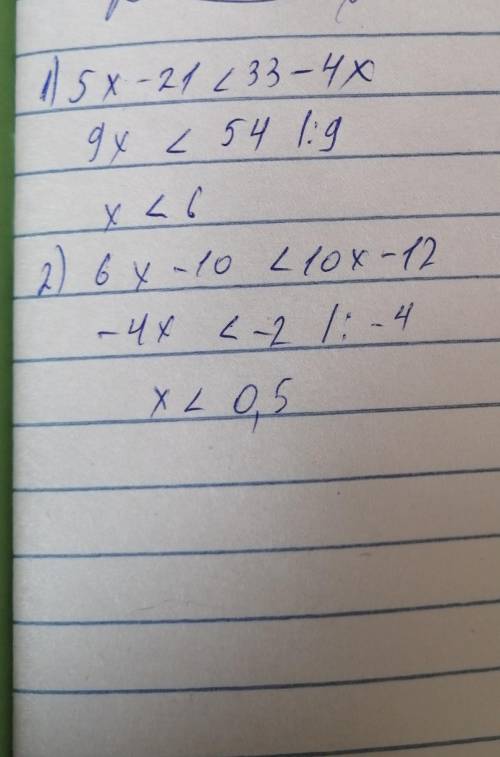 1) 5x - 21 < 33 - 4x
9x < 54 |:9
x < 6
2) 6x - 10 < 10x - 12
-4x < -2 |: -4
x < 0,5